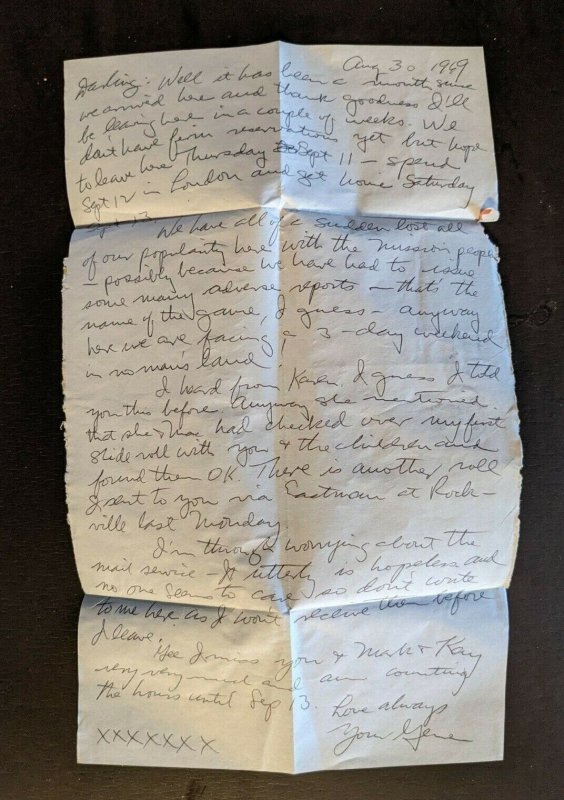 Aug 30 1969
Darling: Well it has been a month since
we arrived here and thank goodness I'll
be leaving here in a couple of weeks. We
don't have firm reservations yet but hope
to leave here Thursday Sept 11 — spend
Sept 12 in London and get home Saturday
Sept 13.
We have all of a sudden lost all
of our popularity here with the mission people
— possibly because we have had to issue
some many adverse reports — that's the
name of the game, I guess — anyway
here we are facing a 3-day weekend
in no man's land!
I heard from Karen. I guess I told
you this before. Anyway she mentioned
that she & Mac had checked over my first
slide roll with you & the children and
found them OK. There is another roll
I sent to you via Eastman at Rock-
ville last Monday.
I'm through worrying about the
mail service — It utterly is hopeless and
no one seems to care so don't write
to me here as I won't receive them before
I leave.
Gee I miss you & Mark & Kay
very very much and am counting
the hours until Sep 13.
Love always
Your Gene
XXXXXXX